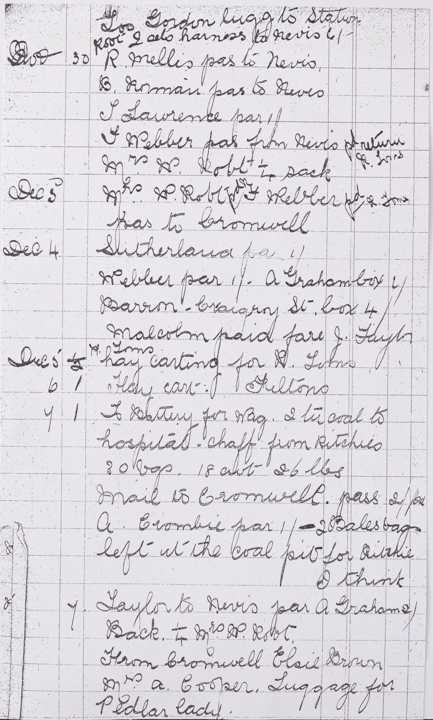 Geo Gordon lugg to Station
Robt 2 sets harness to Nevis 6/-
30 R Mellis pas to Nevis.
B. Romain pas to Nevis
T Lawrence par 1/
T Webber pas from Nevis return
Mrs W. Robt ½ sack
Dec 5 Mrs W. Robt pd T Webber pd
pas to Cromwell
Dec 4 Sutherland pa 1/
Webber par 1/- A Graham box 2/
Barron - Craigroy St. box 4/
Malcolm paid fare J. Taylor
Dec 5 ½ hay carting for
6 1 Hay cart. Feltons
7 1 To Battery for Wag. 2 tu coal to
hospital - chaff from Ritchies
30 bgs. 18 cwt 26 lbs
Mail to Cromwell. pass 2/
A. Crombie par 1/ - 2 Bales bags
left at the coal pit for Ritchie
I think
7. Taylor to Nevis par A Graham 2/
Back. Mrs W. Robt.
From Cromwell Elsie Brown
Mrs A. Cooper. Luggage for
Pedlar lady.